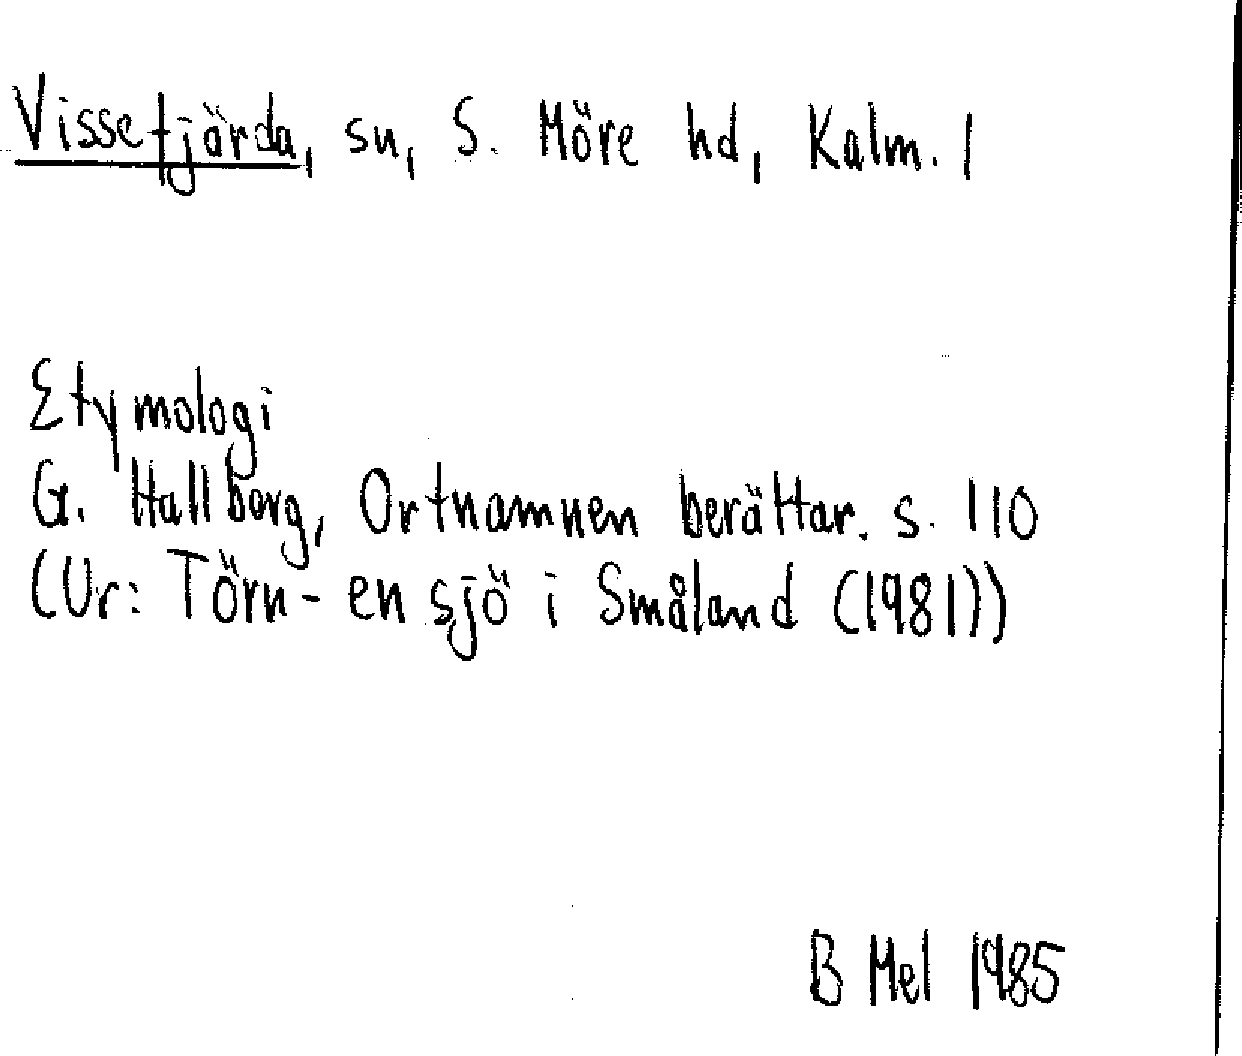 Vissefjärda, sn, S. Möre hd, Kalm. l
Etymologi
G. Hallberg, Ortnamnen berättar. s. 110
(Ur: Törn - en sjö i Småland (1981))
B Mel 1985